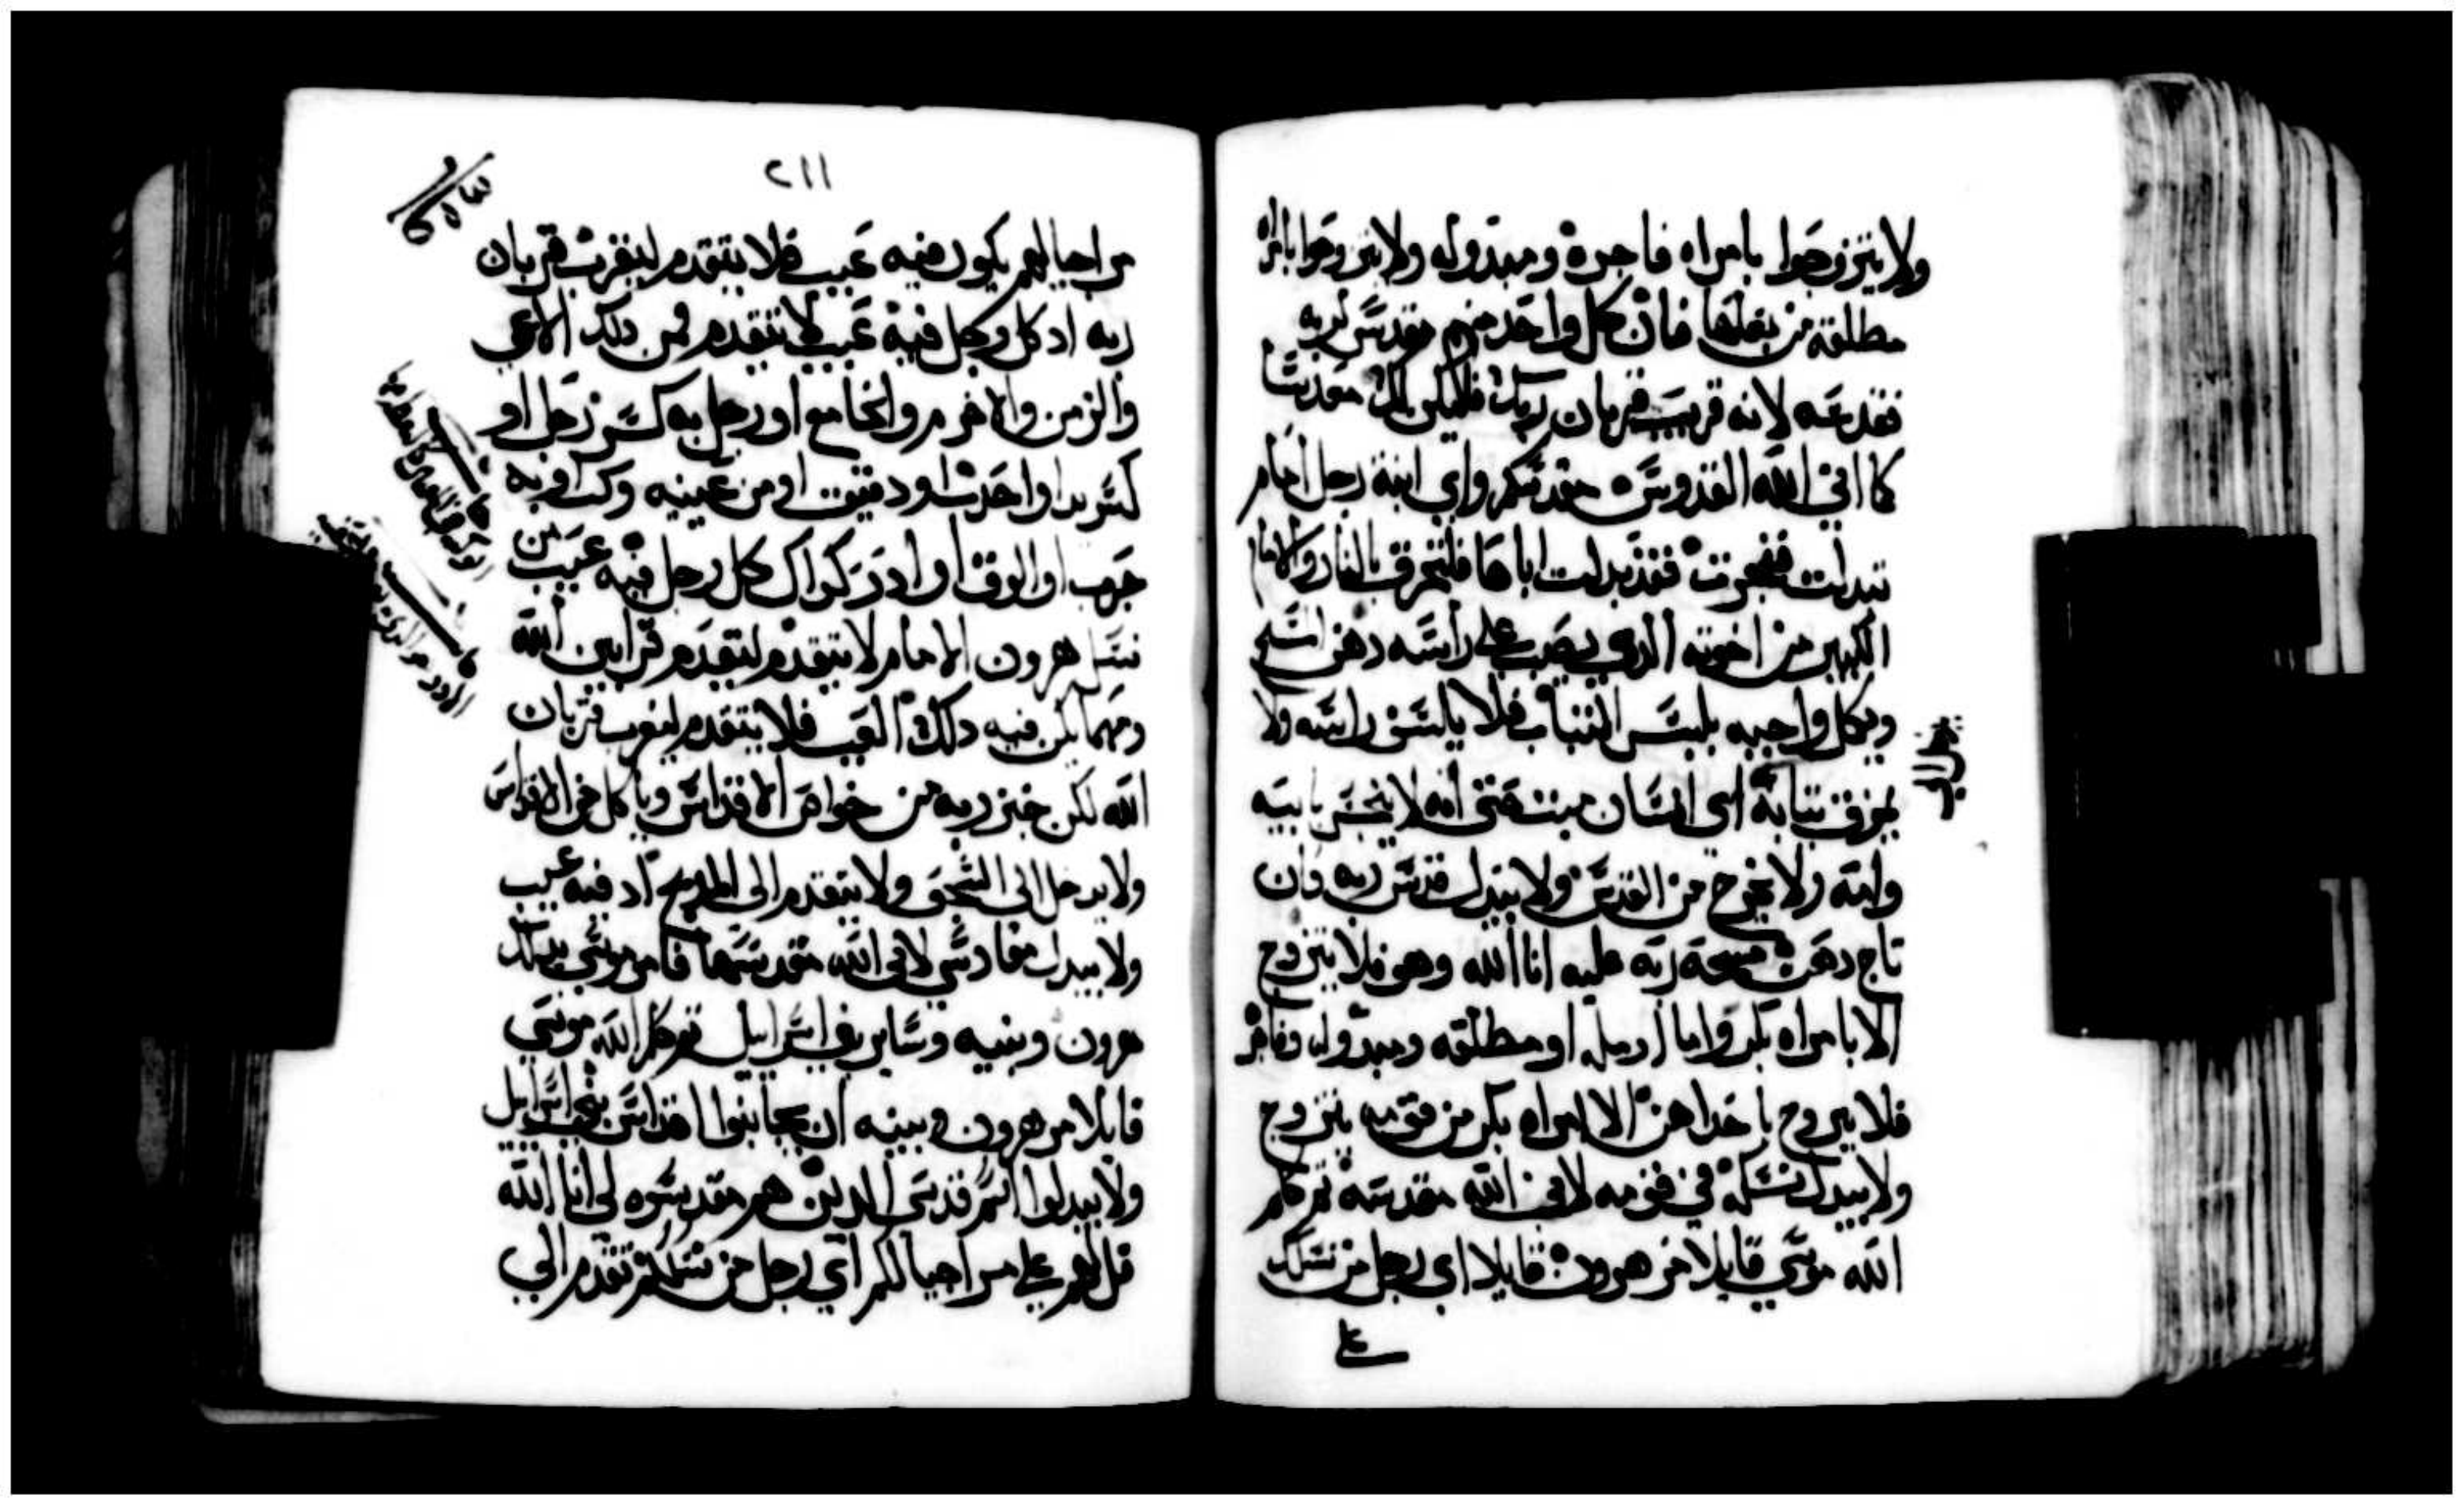 ولا يتزوجوا بامراه فاجرة ومبدوله ولا يتزوجوا بامراه
مطلقة من بعلها فان كل واحد منهم مقدس لربه
فقدسه لانه قريب قربان ربك فليكن لك مقدسًا
كما اني الله القدوس مقدسكم واي ابنة رجل امام
تبدلت ففجرت فقد بدلت اباها فلتحرق بالنار والامام
الكبير من اخوته الذي يصب على راسه دهن المسح
ويكمل واجبه بلبس الثياب فلا يشق راسه ولا
يخرق ثيابه الي انسان ميت حتى انه لا ينجس بابيه
وامه ولا يخرج من القدس ولا يبدل قدس ربه فان
تاج دهن مسحة ربه عليه انا الله وهو فلا يتزوج
الا بامراه بكر واما ارمله او مطلقه ومبدوله وفاجره
فلا يتزوج باحداهن الا امراه بكر من قومه يتزوج
ولا يبدل نسله في قومه لاني الله مقدسه ثم كلم
الله موسي قايلا مر هرون قايلا اي رجل من نسلك
على
٢١١
من اجيالهم يكون فيه عيب فلا يتقدم ليقرب قربان
ربه اد كل رجل فيه عيب لا يتقدم فمن دلك الاعمي
والزمن والاخرم والجامع او رجل به كسر رجل او
كسر يد او احدب او دقيق او من عينيه وكت او به
جرب او القوبا او ادر كداك كل رجل فيه عيب من
نسل هرون الامام لا يتقدم ليقدم قرابين الله
ومهما يكن فيه دلك العيب فلا يتقدم ليقرب قربان
الله لكن خبز ربه من خواص الاقداس وياكل من الاقداس
ولا يدخل الى السجف ولا يتقدم الى المدبح اد فيه عيب
ولا يبدل مقادسي لاني الله مقدسها فامر موسي بدلك
هرون وبنيه وساير بني اسراييل ثم كلم الله موسي
قايلا مر هرون وبنيه ان يجانبوا اقداس بني اسراييل
ولا يبدلوا اسم قدسي الدين هم مقدسوه لي انا الله
قل لهم علي مر اجيالكم اي رجل من نسلكم تقدم الي